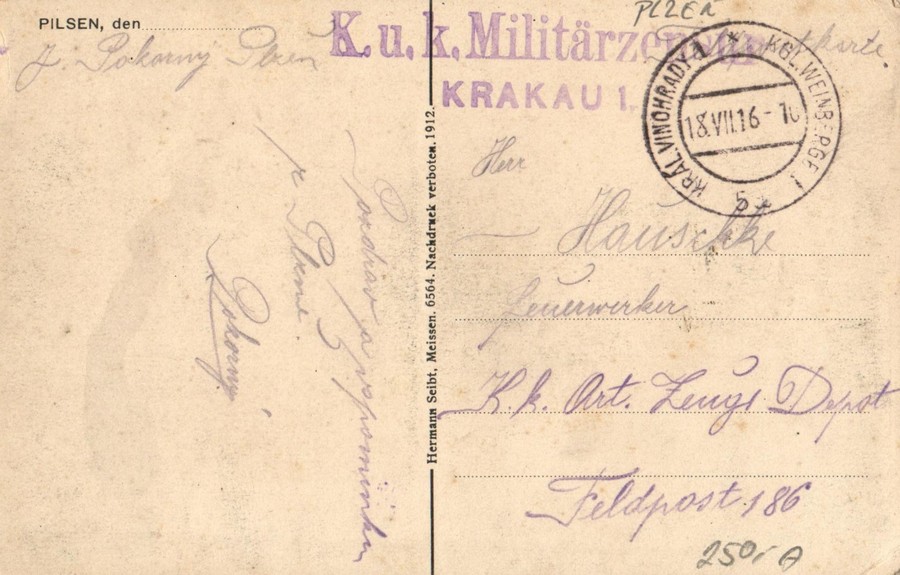 PILSEN, den
J. Pokorny Plzeň
Pozdrav a vzpomínku
z Plzně
Pokorny
Hermann Seibt, Meissen. 6564. Nachdruck verboten. 1912.
PLZEŇ
K. u. k. Militärzensur
KRAKAU 1.
KRÁL. VINOHRADY 1 * KGL. WEINBERGE 1
18.VII.16-10
Herr
Hauschke
Feuerwerker
K. k. Art. Zeugs Depot
Feldpost 186
250,- A